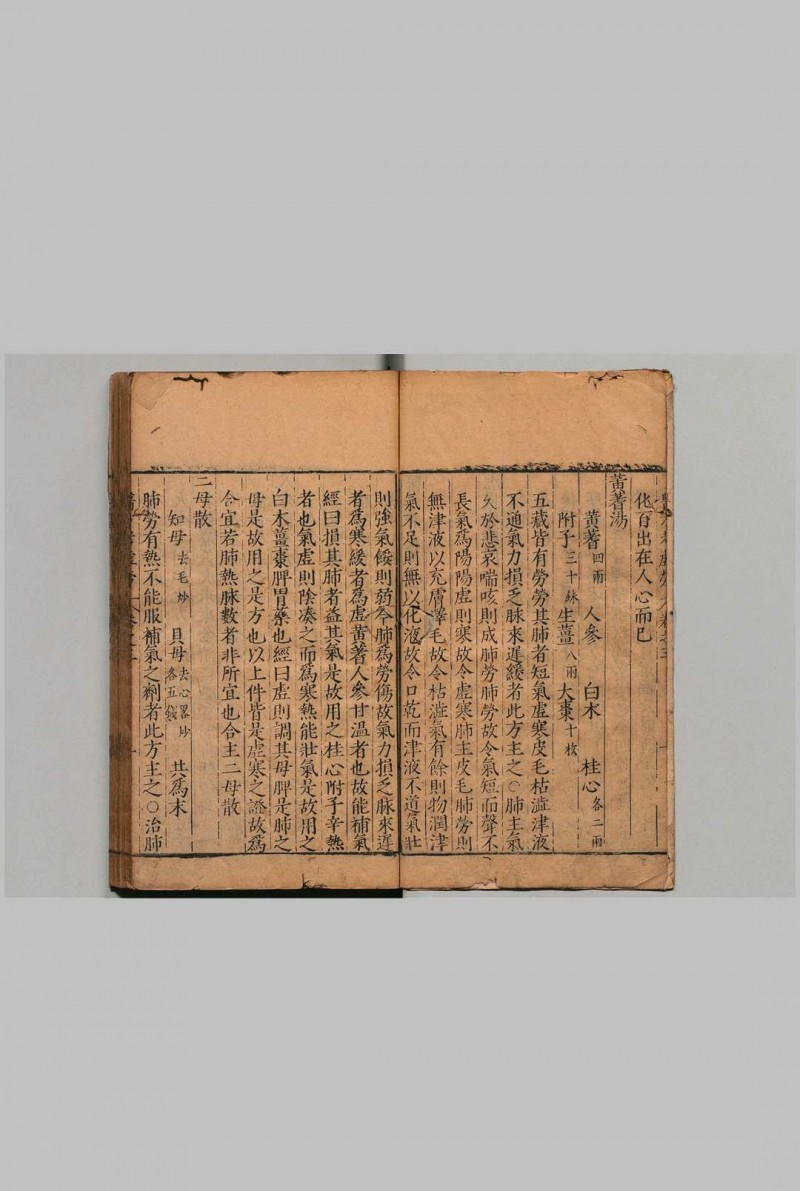 化百出在人心而已
黃蓍湯
黃蓍四兩 人參 白朮 桂心各二兩
附子三十銖 生薑八兩 大棗十枚
五藏皆有勞勞其肺者短氣虛寒皮毛枯澁津液
不通氣力損乏脉來遲緩者此方主之○肺主氣
久於悲哀喘咳則成肺勞肺勞故令氣短而聲不
長氣爲陽陽虛則寒故令虛寒肺主皮毛肺勞則
無津液以充膚澤毛故令枯澁氣有餘則物潤津
氣不足則無以化液故令口乾而津液不道氣壯
則強氣餒則弱今肺爲勞傷故氣力損乏脉來遲
者爲寒緩者爲虛黃蓍人參甘溫者也故能補氣
經曰損其肺者益其氣是故用之桂心附子辛熱
者也氣虛則陰凑之而爲寒熱能壯氣是故用之
白朮薑棗脾胃藥也經曰虛則調其母脾是肺之
母是故用之是方也以上件皆是虛寒之證故爲
合宜若肺熱脉數者非所宜也合主二母散
二母散
知母去毛炒 貝母去心畧炒各五錢 共爲末
肺勞有熱不能服補氣之劑者此方主之○治肺